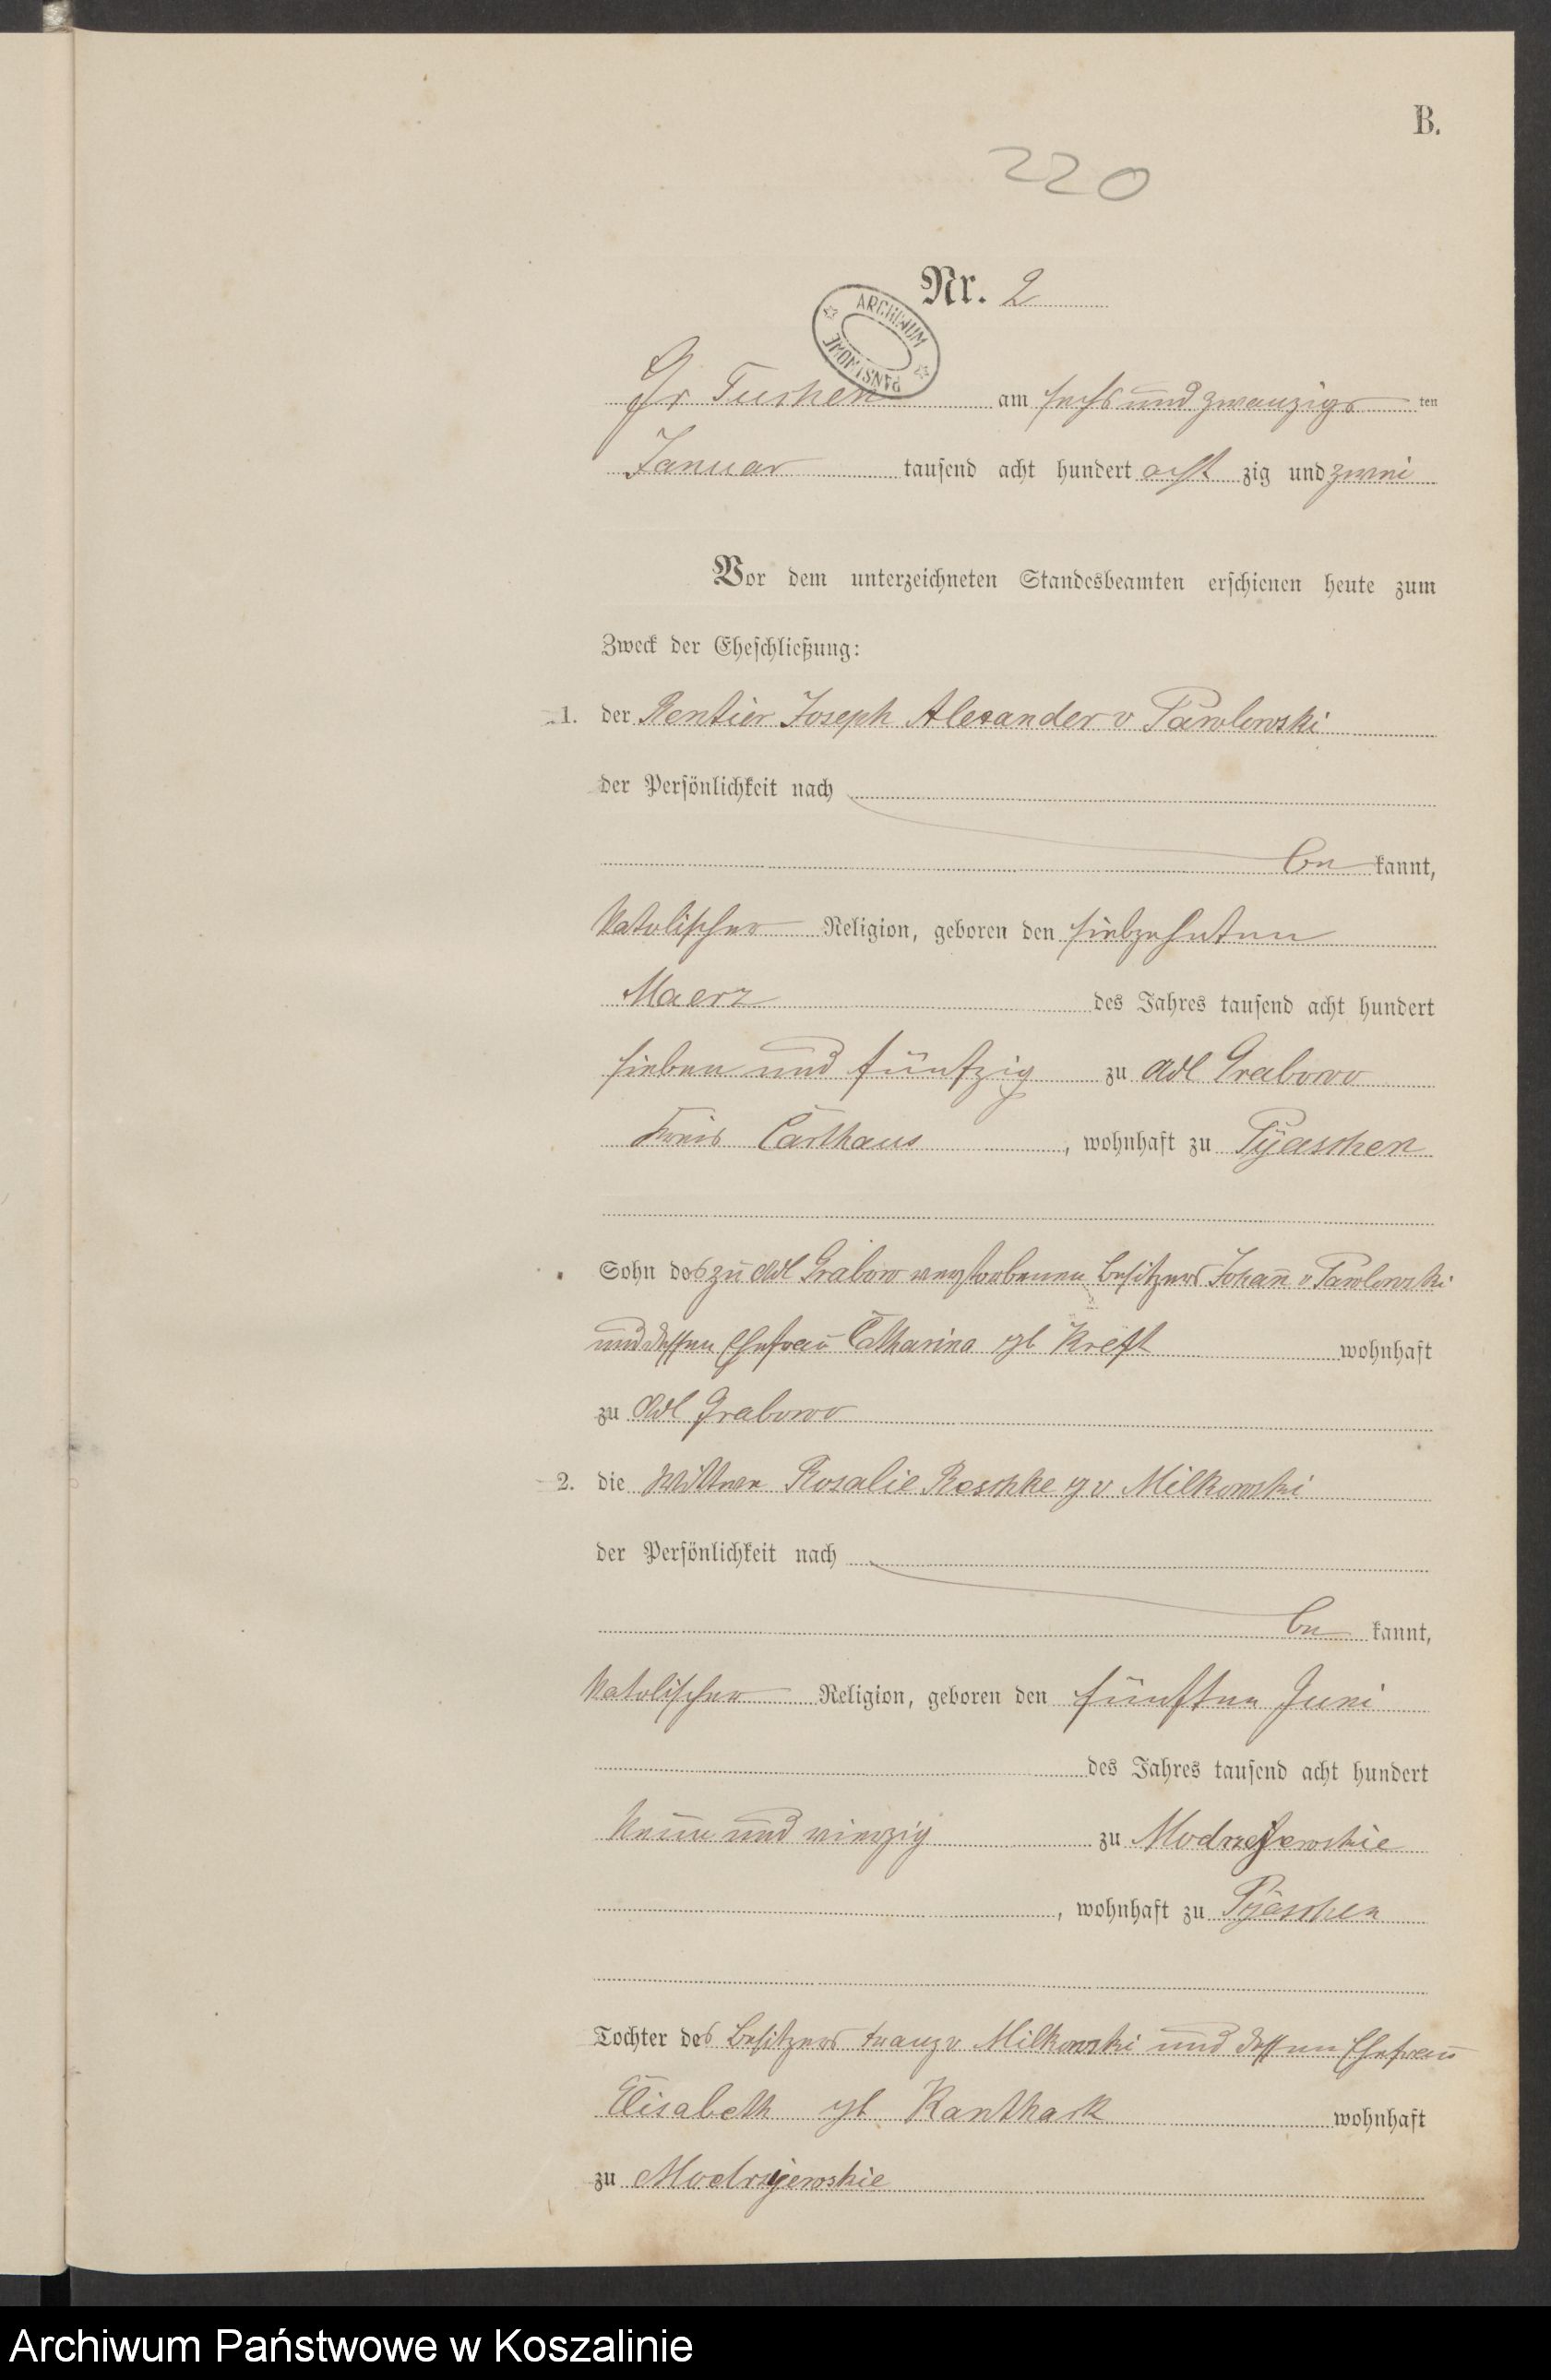 B.
220
Nr. 2
ARCHIWUM PAŃSTWOWE
Gr Tuchen am sechs und zwanzigs ten
Januar tausend acht hundert acht zig und zwei
Vor dem unterzeichneten Standesbeamten erschienen heute zum
Zweck der Eheschließung:
1. der Rentier Joseph Alexander v Pawlowski
der Persönlichkeit nach
be kannt,
katolischer Religion, geboren den siebzehnten
Maerz des Jahres tausend acht hundert
sieben und fünfzig zu Adl Grabowo
Kreis Carthaus, wohnhaft zu Pyaschen
Sohn des zu Adl Grabow verstorbenen Besitzers Johann v Pawlowski
und dessen Ehefrau Catharina gb Kreft wohnhaft
zu Adl Grabowo
2. die Wittwe Rosalie Reschke g v Milkowski
der Persönlichkeit nach
be kannt,
katolischer Religion, geboren den fünften Juni
des Jahres tausend acht hundert
neun und vierzig zu Modrzejewskie
, wohnhaft zu Pyaschen
Tochter des Besitzers Franz v Milkowski und dessen Ehefrau
Elisabeth gb Kanthack wohnhaft
zu Modrzyewskie
Archiwum Państwowe w Koszalinie